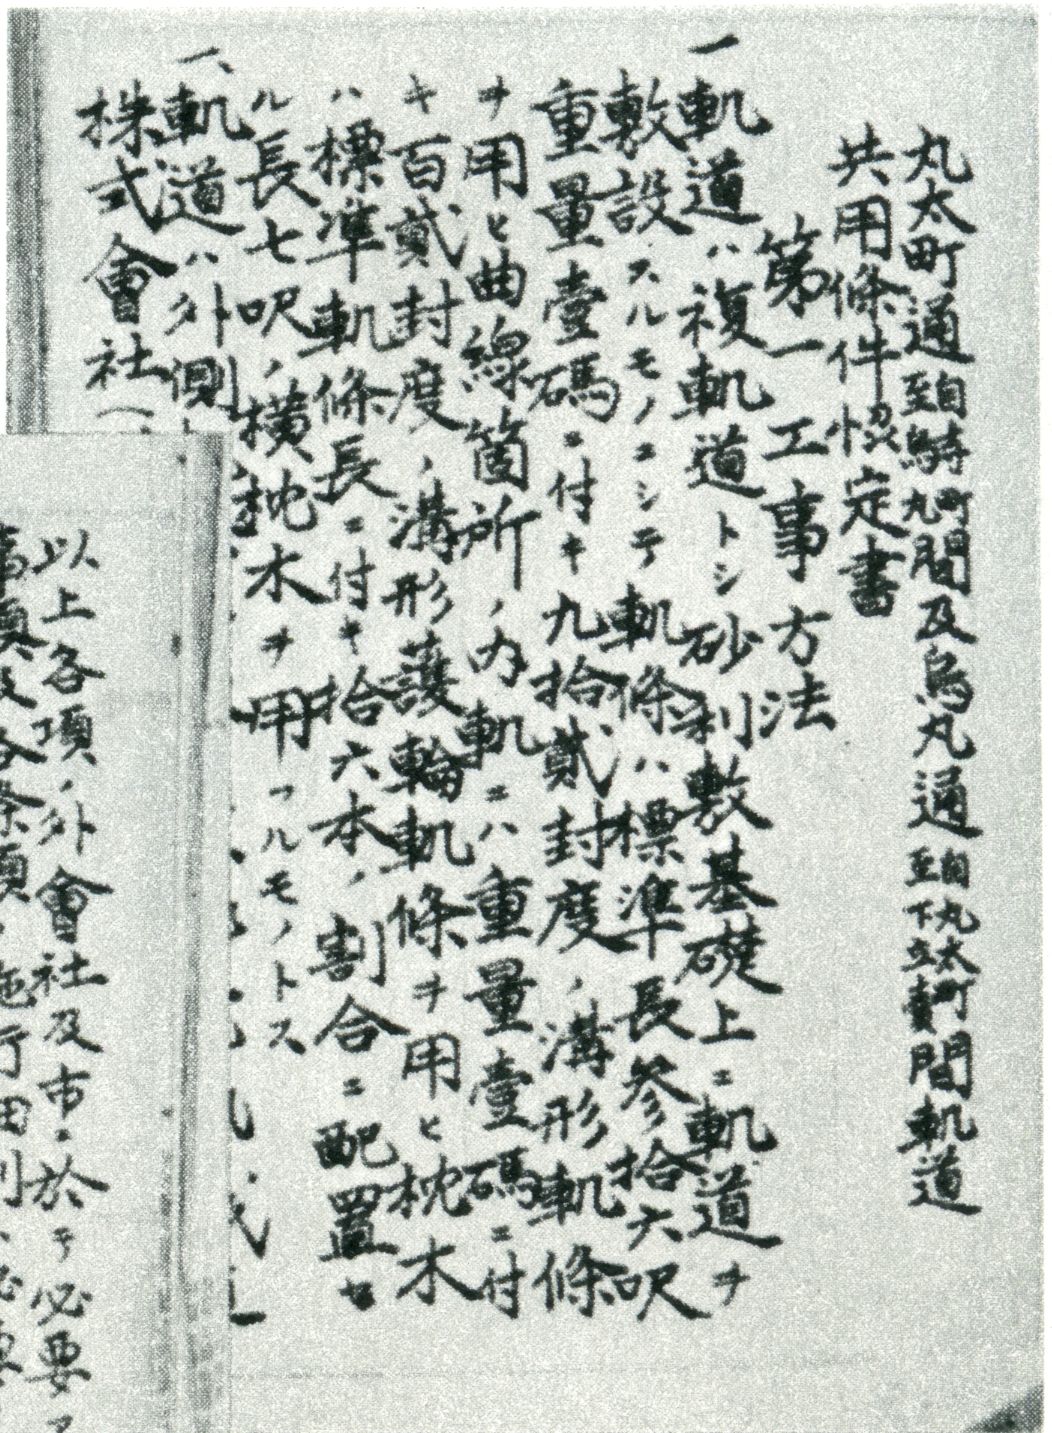 丸太町通自寺町至烏丸間及烏丸通自丸太町至下立賣間軌道
共用條件協定書
第一工事方法
一軌道ハ複軌道トシ砂利敷基礎上ニ軌道ヲ
敷設スルモノニシテ軌條ハ標準長參拾六呎
重量壹碼ニ付キ九拾貳封度ノ溝形軌條
ヲ用ヒ曲線箇所ノ内軌ニハ重量壹碼ニ付
キ百貳封度ノ溝形護輪軌條ヲ用ヒ枕木
ハ標準軌條長ニ付キ拾六本ノ割合ニ配置セ
ル長七呎ノ橫枕木ヲ用フルモノトス
一、軌道ハ外側
株式會社
以上各項ノ外會社及市ニ於テ必要